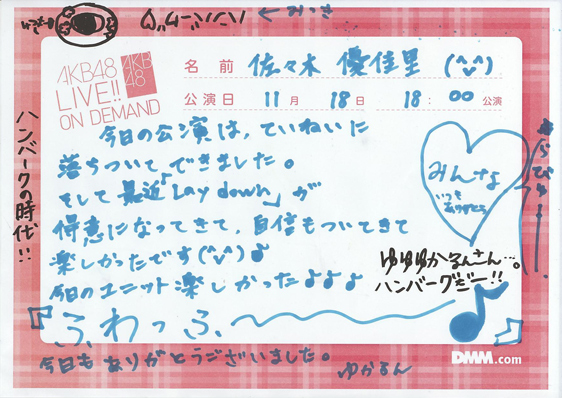 ←みつき
AKB48
LIVE!!
ON DEMAND
AKB
48
名前 佐々木 優佳里 (^v^)
公演日 11月 18日 18:00 公演
今日の公演は、ていねいに
落ちついてできました。
そして最近「Lay down」が
得意になってきて、自信もついてきて
楽しかったです(^v^)♪
今日のユニット楽しかったよよよ
『ふわっふ〜♪』
今日もありがとうございました。
ゆかるん
みんな
いつも
ありがとう
らびゅー
ゆゆゆかるんさん…。
ハンバーグだー!!
ハンバークの時代!!
DMM.com